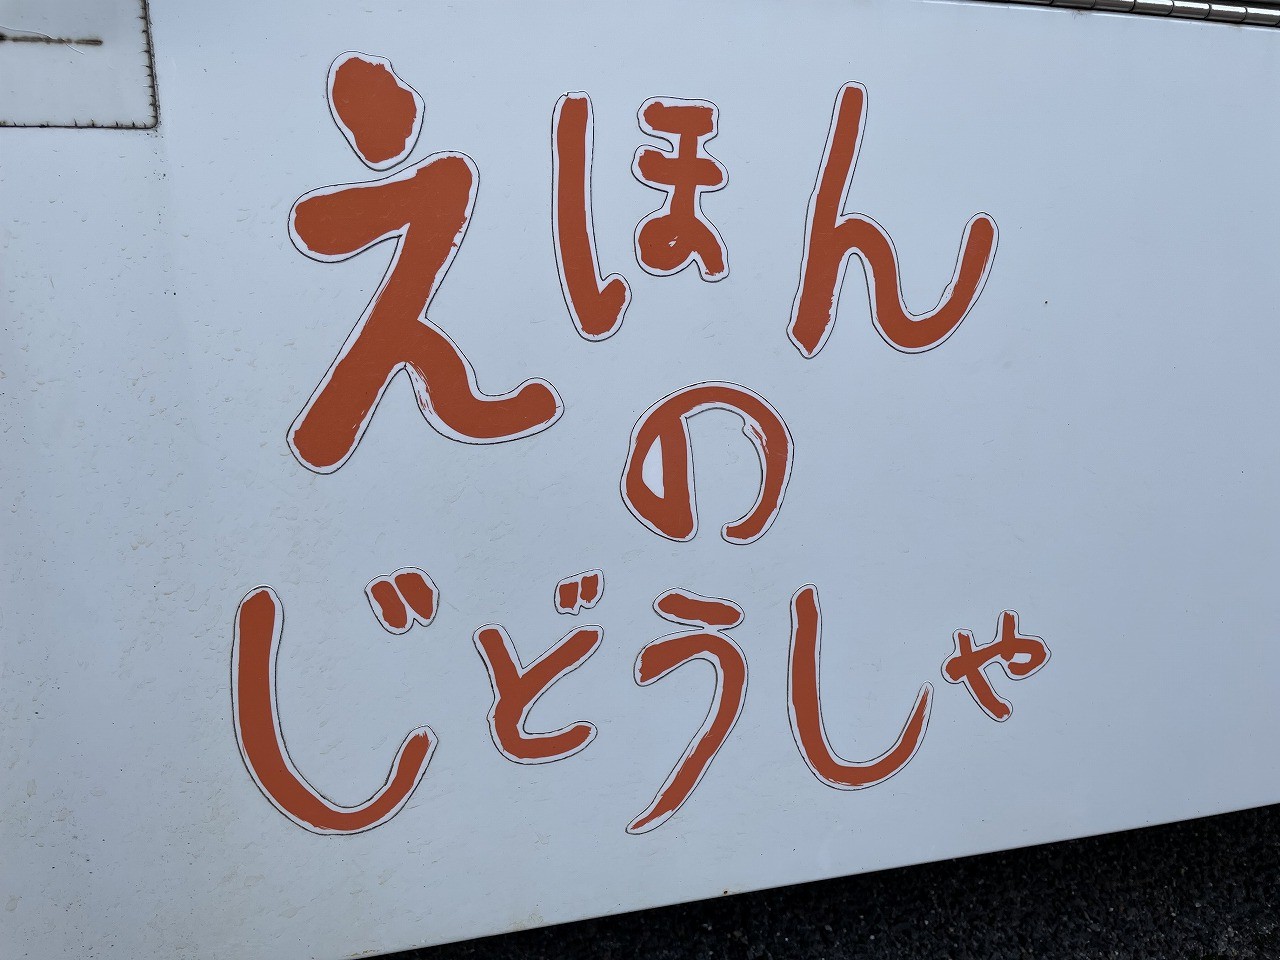 えほん
の
じどうしゃ